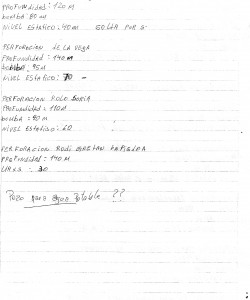 PROFUNDIDAD: 120 M
bomba: 80 m
NIVEL ESTATICO: 40 m
PERFORACION DE LA VEGA
PROFUNDIDAD: 140 M
bomba: 95 M
NIVEL ESTATICO: 70
PERFORACION POLO SORIA
PROFUNDIDAD: 110 M
bomba: 90 m
NIVEL ESTATICO: 60
PERFORACION RUDI
PROFUNDIDAD: 140 M
30
Pozo para agua Potable ??